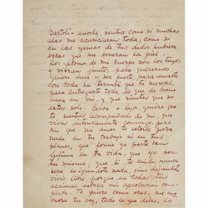 Bartoli - anoche sentía como si muchas
alas me acariciaran toda, como si
en las yemas de tus dedos hubiera
bocas que me besaran la piel.
Los átomos de mi cuerpo son los tuyos
y vibran juntos para querernos.
Quiero vivir y ser fuerte para amarte
con toda la ternura que tu mereces,
para entregarte todo lo que de bueno
haya en mi, y que sientas que no
estás solo. Cerca o lejos, quiero que
te sientas acompañado de mi, que
vivas intensamente conmigo, pero
sin que mi amor te estorbe para
nada en tu trabajo ni en tus
planes, que forme yo parte tan
íntima en tu vida, que yo sea
tu mismo, que si te cuido, nunca
será exigiéndote nada, sino dejándote
vivir libre, porque en todas tus
acciones estará mi aprobación com-
pleta. Te quiero como eres, me ena-
mora tu voz, todo lo que dices, lo